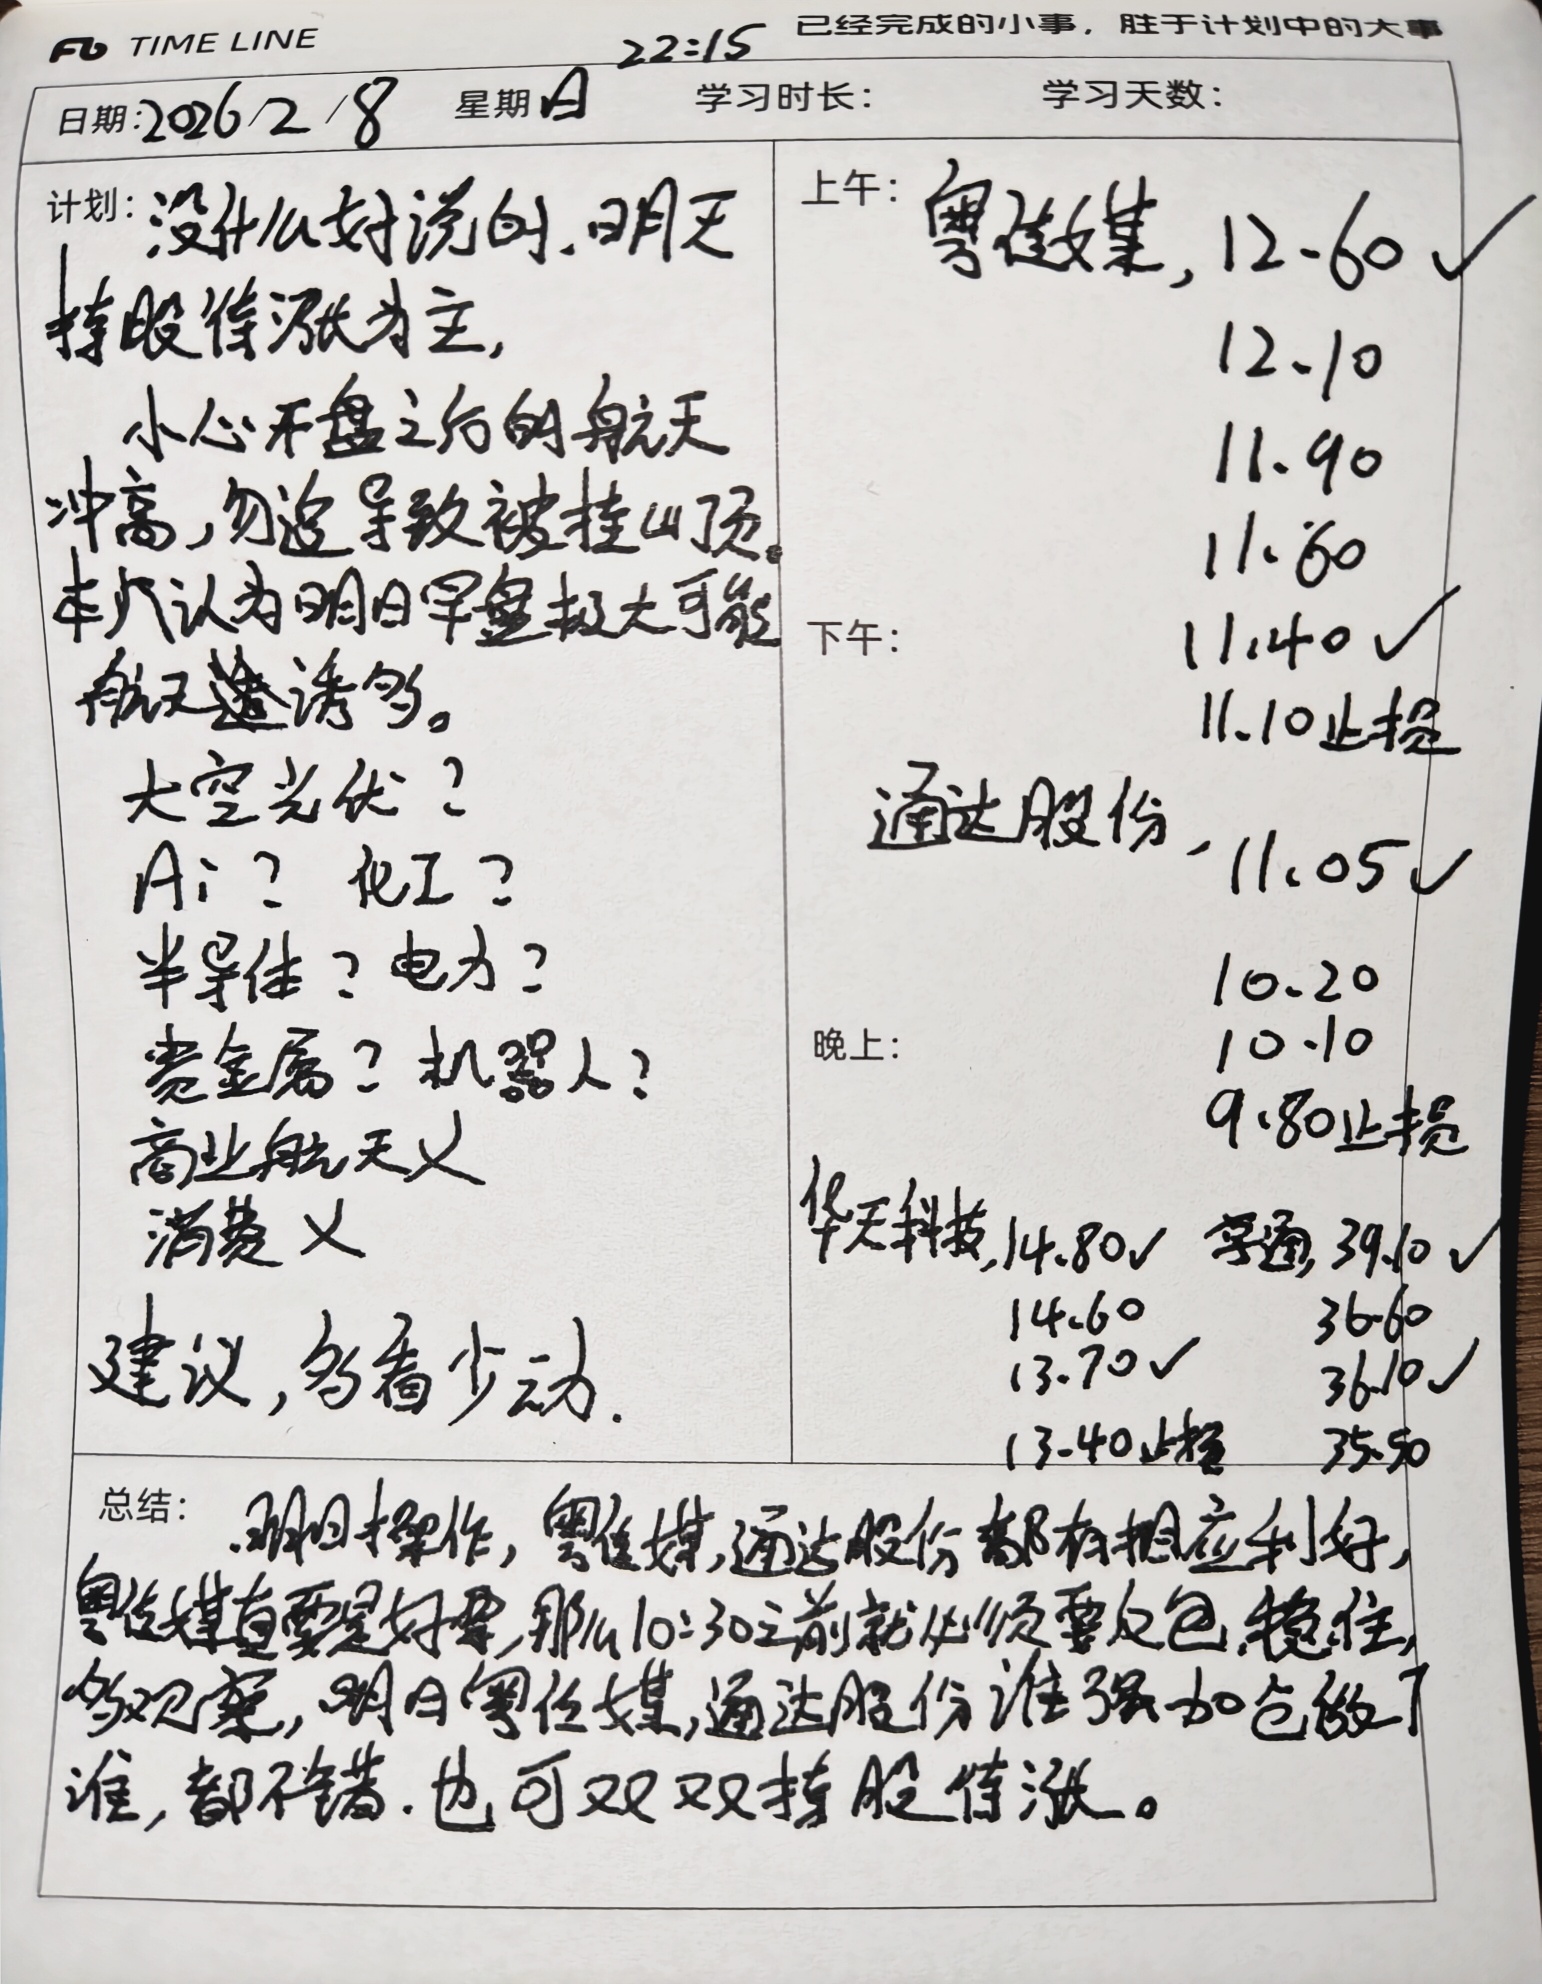 TIME LINE
22:15
已经完成的小事，胜于计划中的大事
日期：2026/2/8 星期日 学习时长： 学习天数：
计划：没什么好说的、明天
持股待涨为主，
小心开盘之后的航天
冲高，勿追导致被挂山顶。
本人认为明日早盘极大可能
航天诱多。
太空光伏？
Ai？ 化工？
半导体？电力？
贵金属？机器人？
商业航天X
消费X
建议，多看少动.
上午：粤传媒，12.60✓
12.10
11.90
11.60
下午：
11.40✓
11.10止损
通达股份，11.05✓
10.20
晚上：
10.10
9.80止损
华天科技，14.80✓
14.60
13.70✓
13.40止损
孚通，39.10✓
36.60
36.10✓
35.50
总结：明日操作，粤传媒，通达股份都有相应利好，
粤传媒真要是好票，那么10:30之前就必须要反包，稳住，
多观察，明日粤传媒，通达股份谁强加仓做T
谁，都不错.也可双双持股待涨。